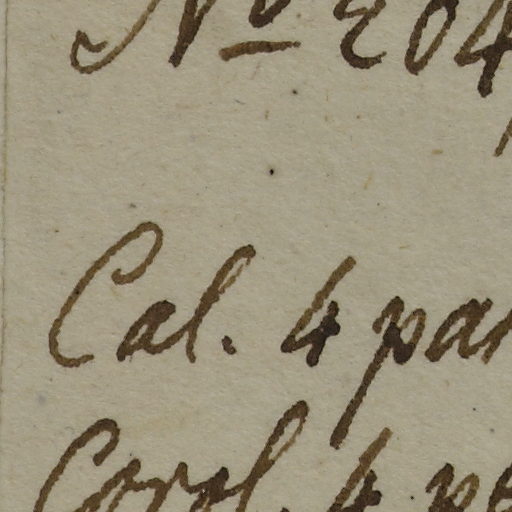 No 204
Cal. 4 par
Corol. 4 pe